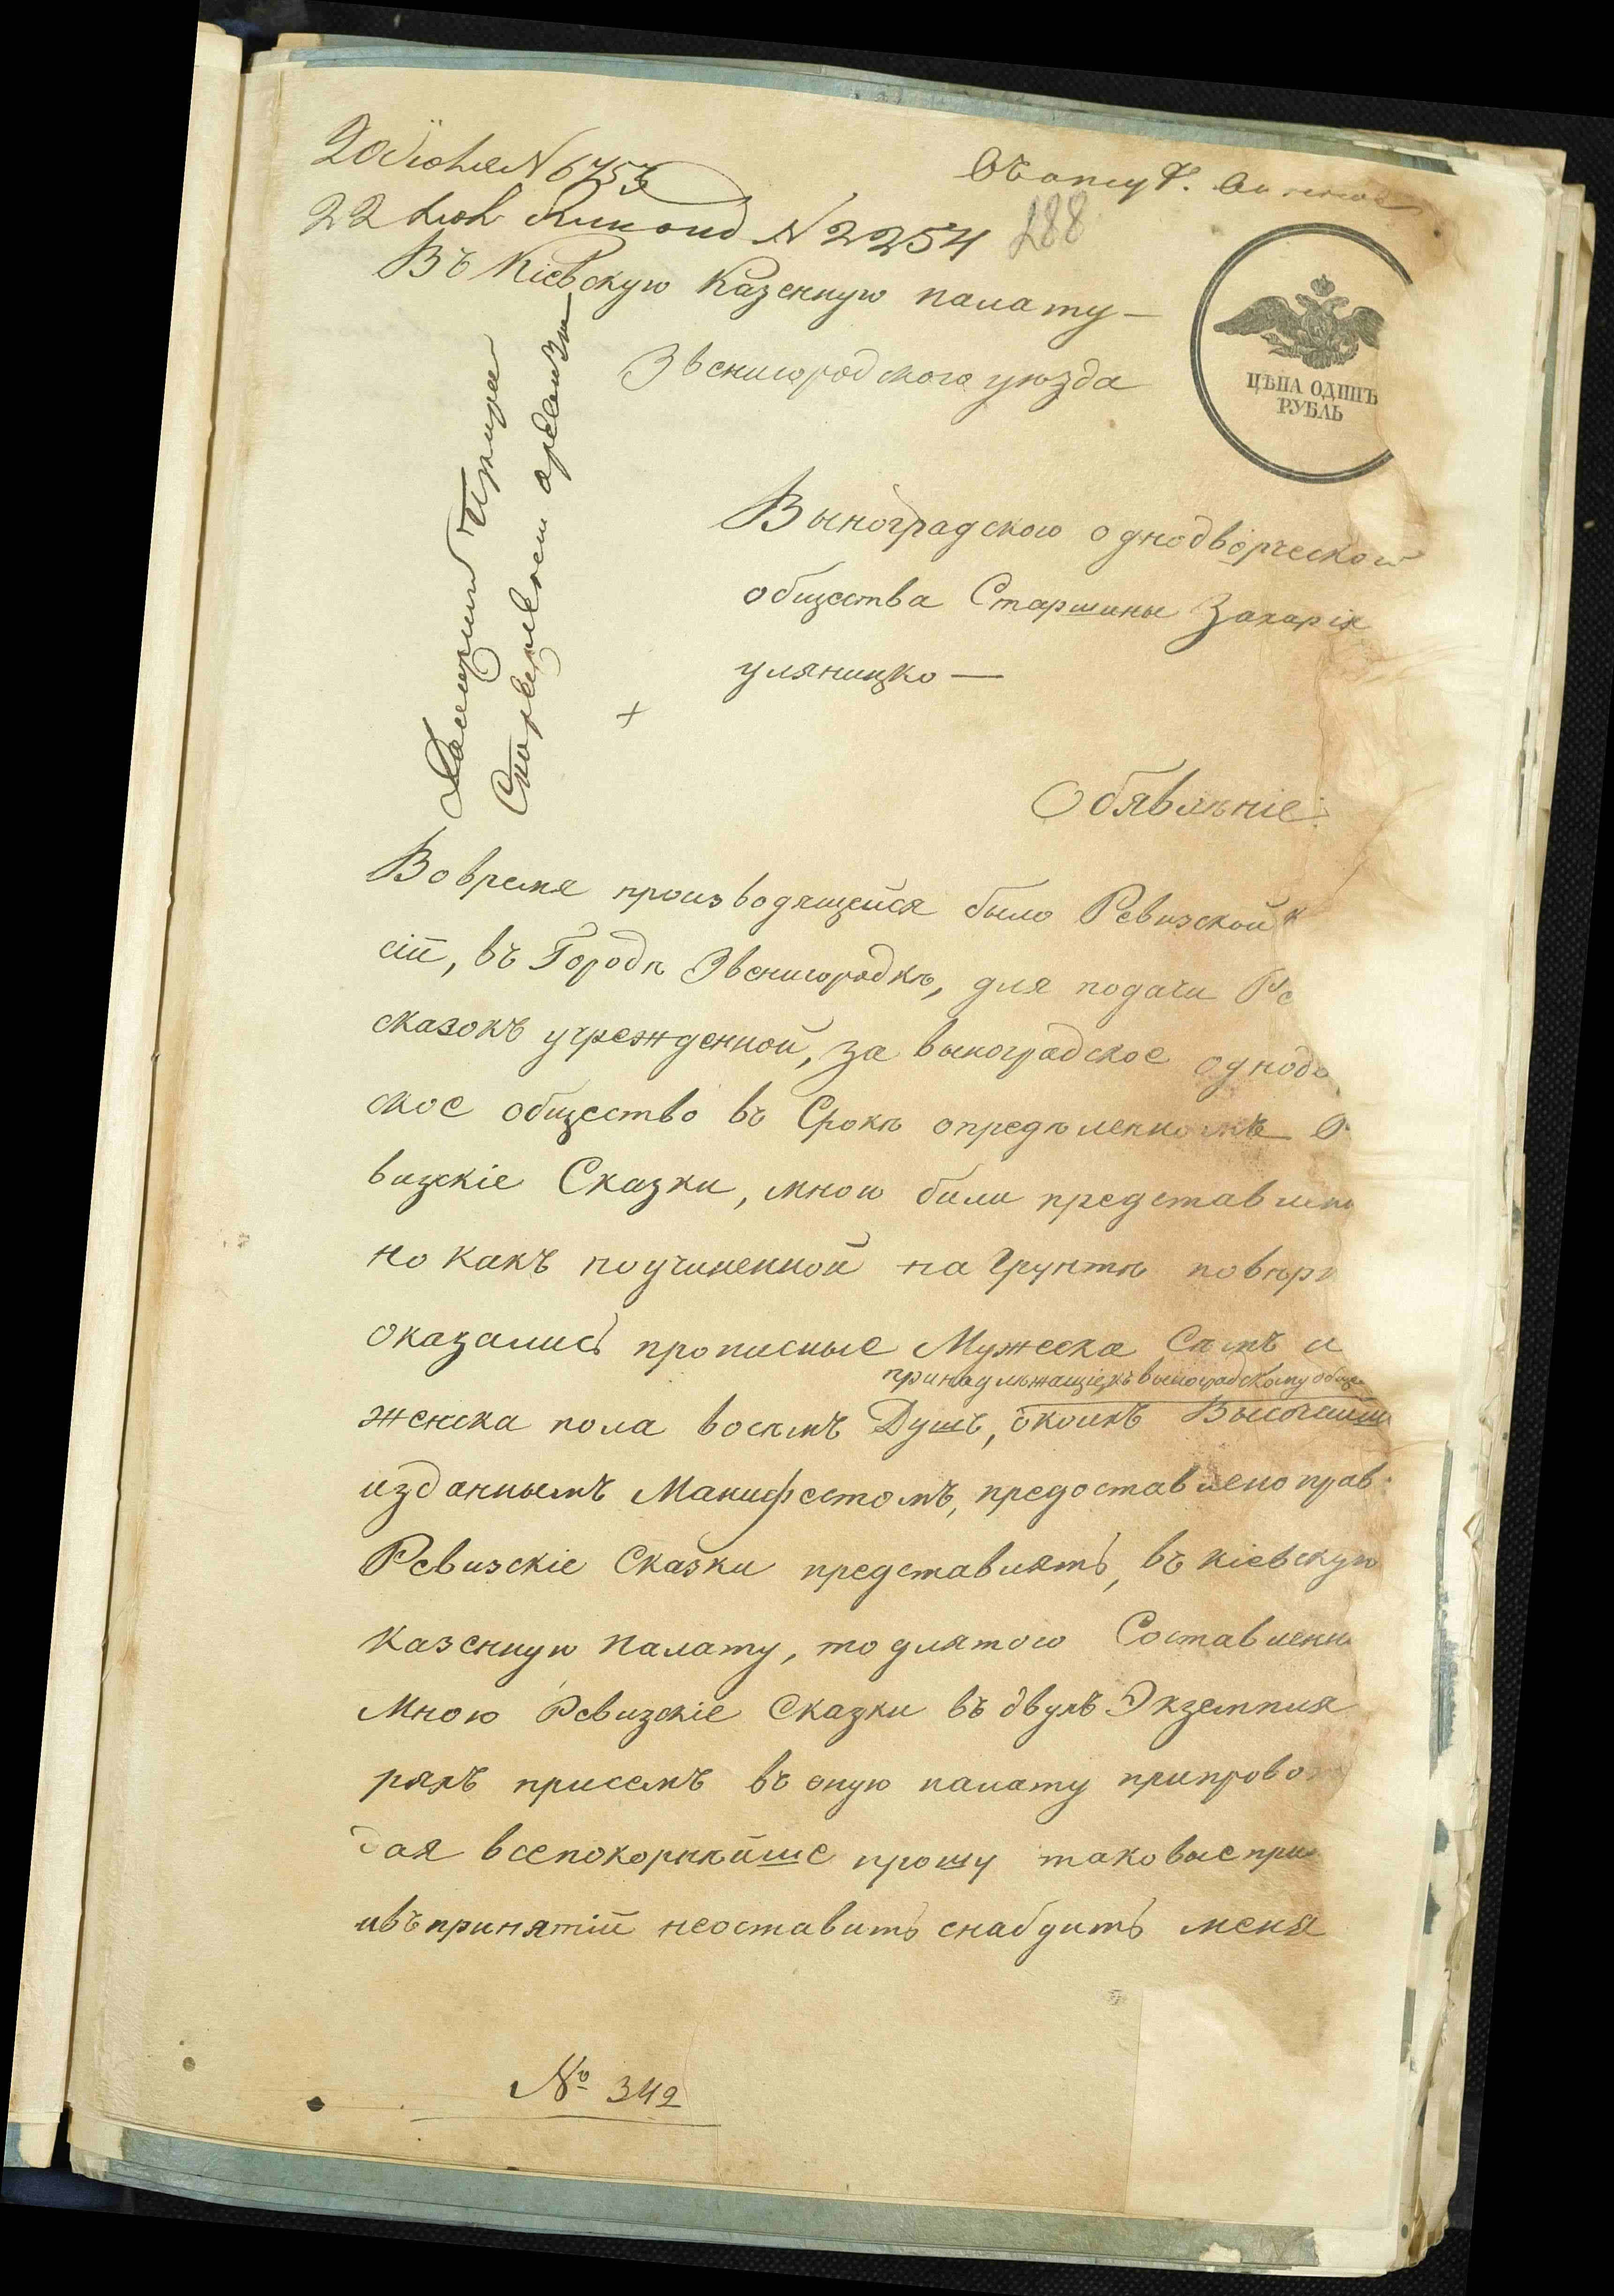 20 Июня N 6753
22 Июн N 2254
288
Въ Кіевскую Казенную палату —
Звенигородского уюзда
ЦѢНА ОДИНЪ
РУБЛЬ
Выноградского однодворческого
общества Старшины Захарія
уляницко —
Обявленіе
Вовремя производящейся было Ревизской к
сіи, въ Городѣ Звенигородкѣ, для подачи Ре
сказокъ учрежденной, за выноградское однодв
ское общество въ Срокѣ определенномъ Ре
визскіе Сказки, мною били представлены
но какъ поучиненной на Грунтѣ повѣр
оказались прописные Мужеска Семъ и
принадлежащіе къ выноградскому обще
женска пола восемъ Душъ, окоихъ Высочайше
изданнымъ Манифестомъ, предоставлено прав
Ревизскіе Сказки представлять, въ кіевскую
Казенную Палату, то длятого Составленн
Мною Ревизскіе Сказки въ двухъ Экземпля
ряхъ присемъ въ оную палату припровож
дая всепокорнѣйше прошу таковые при
ивъ принятіи неоставить снабдить меня
№ 342